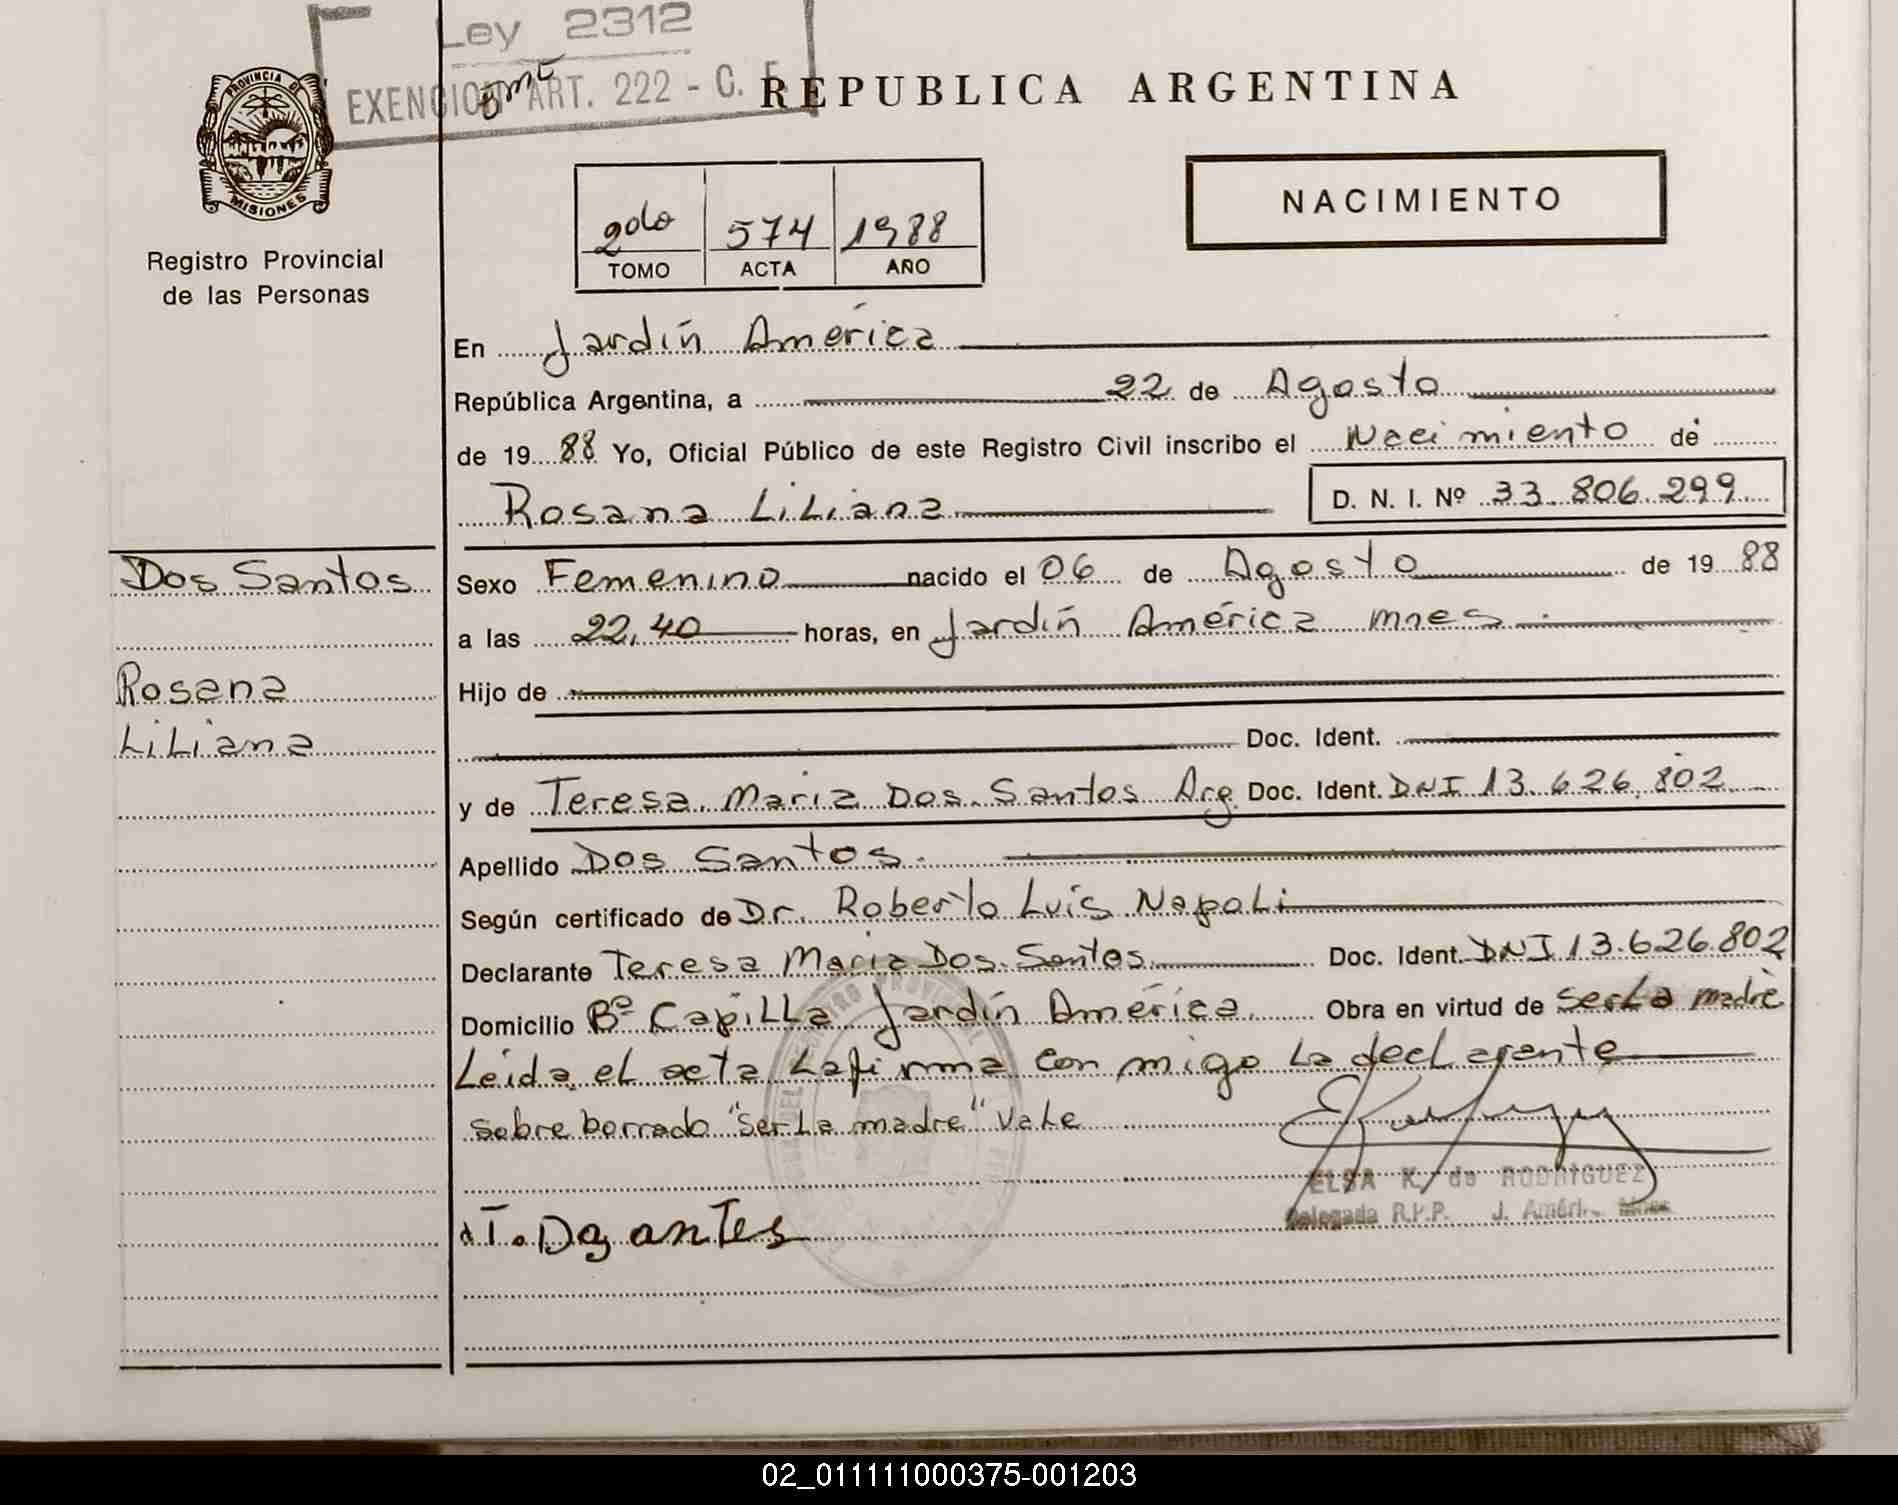 Ley 2312
EXENCION ART. 222 - C. F.
PROVINCIA DE
MISIONES
Registro Provincial
de las Personas
REPUBLICA ARGENTINA
2do 574 1988
TOMO ACTA AÑO
NACIMIENTO
En Jardín América
República Argentina, a 22 de Agosto
de 19 88 Yo, Oficial Público de este Registro Civil inscribo el Nacimiento de
Rosana Liliana D. N. I. Nº 33.806.299
Dos Santos
Rosana
Liliana
Sexo Femenino nacido el 06 de Agosto de 19 88
a las 22,40 horas, en Jardín América Mnes
Hijo de
Doc. Ident.
y de Teresa Maria Dos Santos Arg. Doc. Ident. DNI 13.626.802
Apellido Dos Santos
Según certificado de Dr. Roberto Luis Napoli
Declarante Teresa Maria Dos Santos Doc. Ident. DNI 13.626.802
Domicilio Bº Capilla Jardín América Obra en virtud de ser La madre
Leida el acta La firma con migo La declarante
sobre borrado "ser La madre" Vale
ELSA K. de RODRIGUEZ
Delegada R.P.P. J. Améri. Mnes
02_011111000375-001203